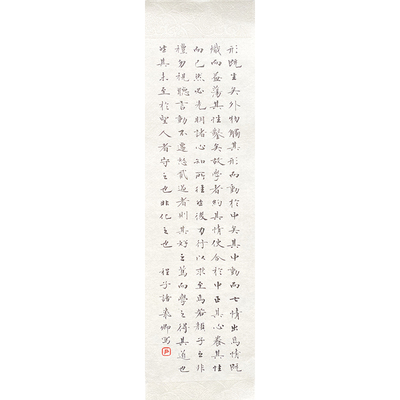 形既生矣外物觸其形而動於中矣其中動而七情出焉情既
熾而益蕩其性鑿矣故學者約其情使合於中正其心養其性
而已然必先明諸心知所往然後力行以求至焉若顏子之非
禮勿視聽言動不遷怒貳過者則其好之篤而學之得其道也
然其未至於聖人者守之也非化之也 程子語